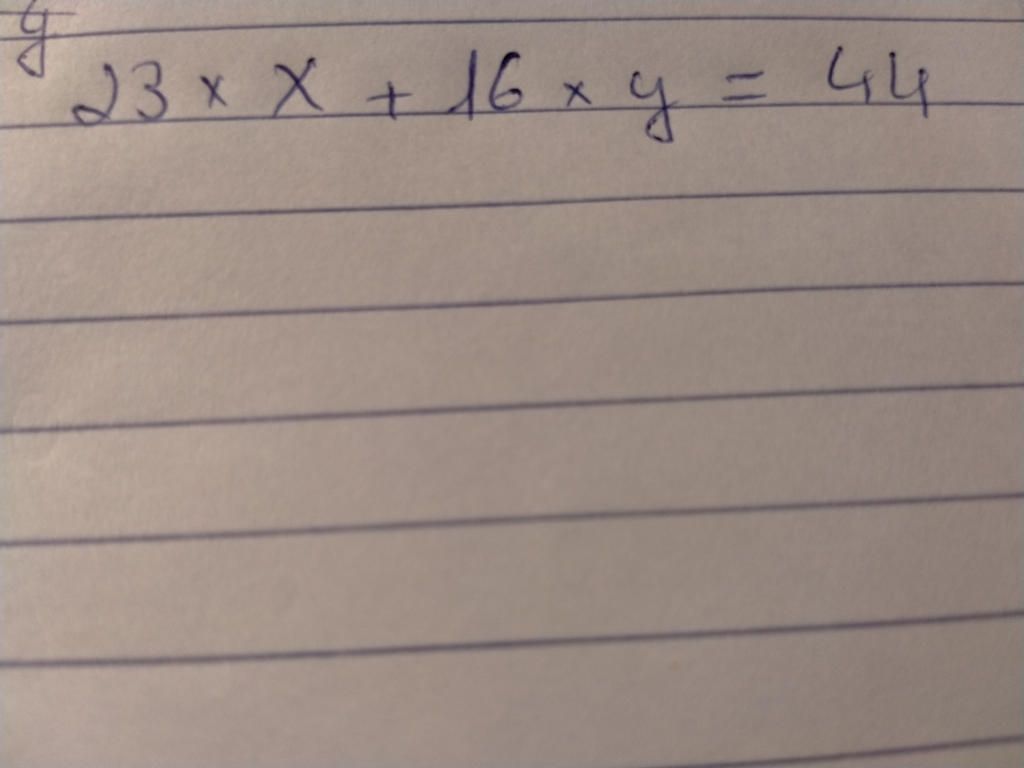 y
23 × X + 16 × y = 44